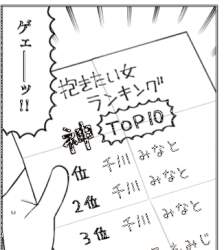 ゲェーーッ!!
抱きたい女
ランキング
神 TOP10
位 千川 みなと
2位 千川 みなと
3位 千川 みなと